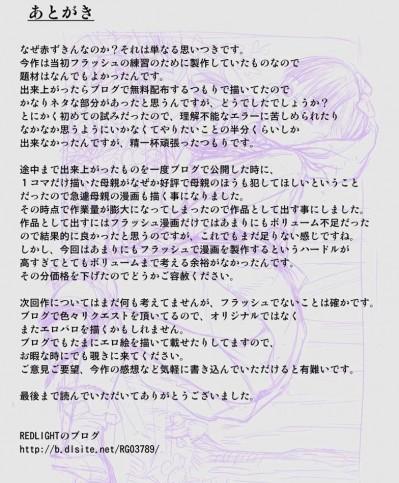 あとがき
なぜ赤ずきんなのか？それは単なる思いつきです。
今作は当初フラッシュの練習のために製作していたものなので
題材はなんでもよかったんです。
出来上がったらブログで無料配布するつもりで描いてたので
かなりネタな部分があったと思うんですが、どうでしたでしょうか？
とにかく初めての試みだったので、理解不能なエラーに苦しめられたり
なかなか思うようにいかなくてやりたいことの半分くらいしか
出来なかったんですが、精一杯頑張ったつもりです。
途中まで出来上がったものを一度ブログで公開した時に、
１コマだけ描いた母親がなぜか好評で母親のほうも犯してほしいということ
だったので急遽母親の漫画も描く事になりました。
その時点で作業量が膨大になってしまったので作品として出す事にしました。
作品として出すにはフラッシュ漫画だけではあまりにもボリューム不足だった
ので結果的に良かったと思うのですが、これでもまだ足りない感じですね。
しかし、今回はあまりにもフラッシュで漫画を製作するというハードルが
高すぎてとてもボリュームまで考える余裕がなかったんです。
その分価格を下げたのでどうかご容赦ください。
次回作についてはまだ何も考えてませんが、フラッシュでないことは確かです。
ブログで色々リクエストを頂いてるので、オリジナルではなく
またエロパロを描くかもしれません。
ブログでもたまにエロ絵を描いて載せたりしてますので、
お暇な時にでも覗きに来てください。
ご意見ご要望、今作の感想など気軽に書き込んでいただけると有難いです。
最後まで読んでいただいてありがとうございました。
REDLIGHTのブログ
http://b.dlsite.net/RG03789/